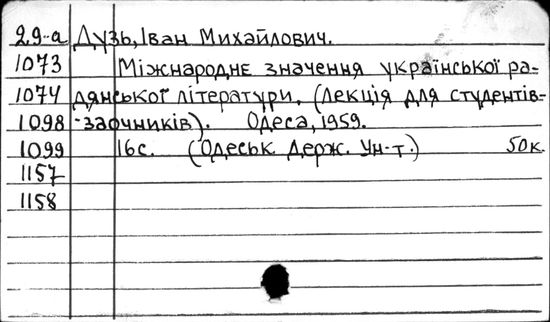 29-а Дузь, Іван Михайлович.
1073 Міжнародне значення української ра-
1074 дянської літератури. (Лекція для студентів-
1098 -заочників). Одеса, 1959.
1099 16с. (Одеськ. Держ. Ун-т.) 50к.
1157
1158